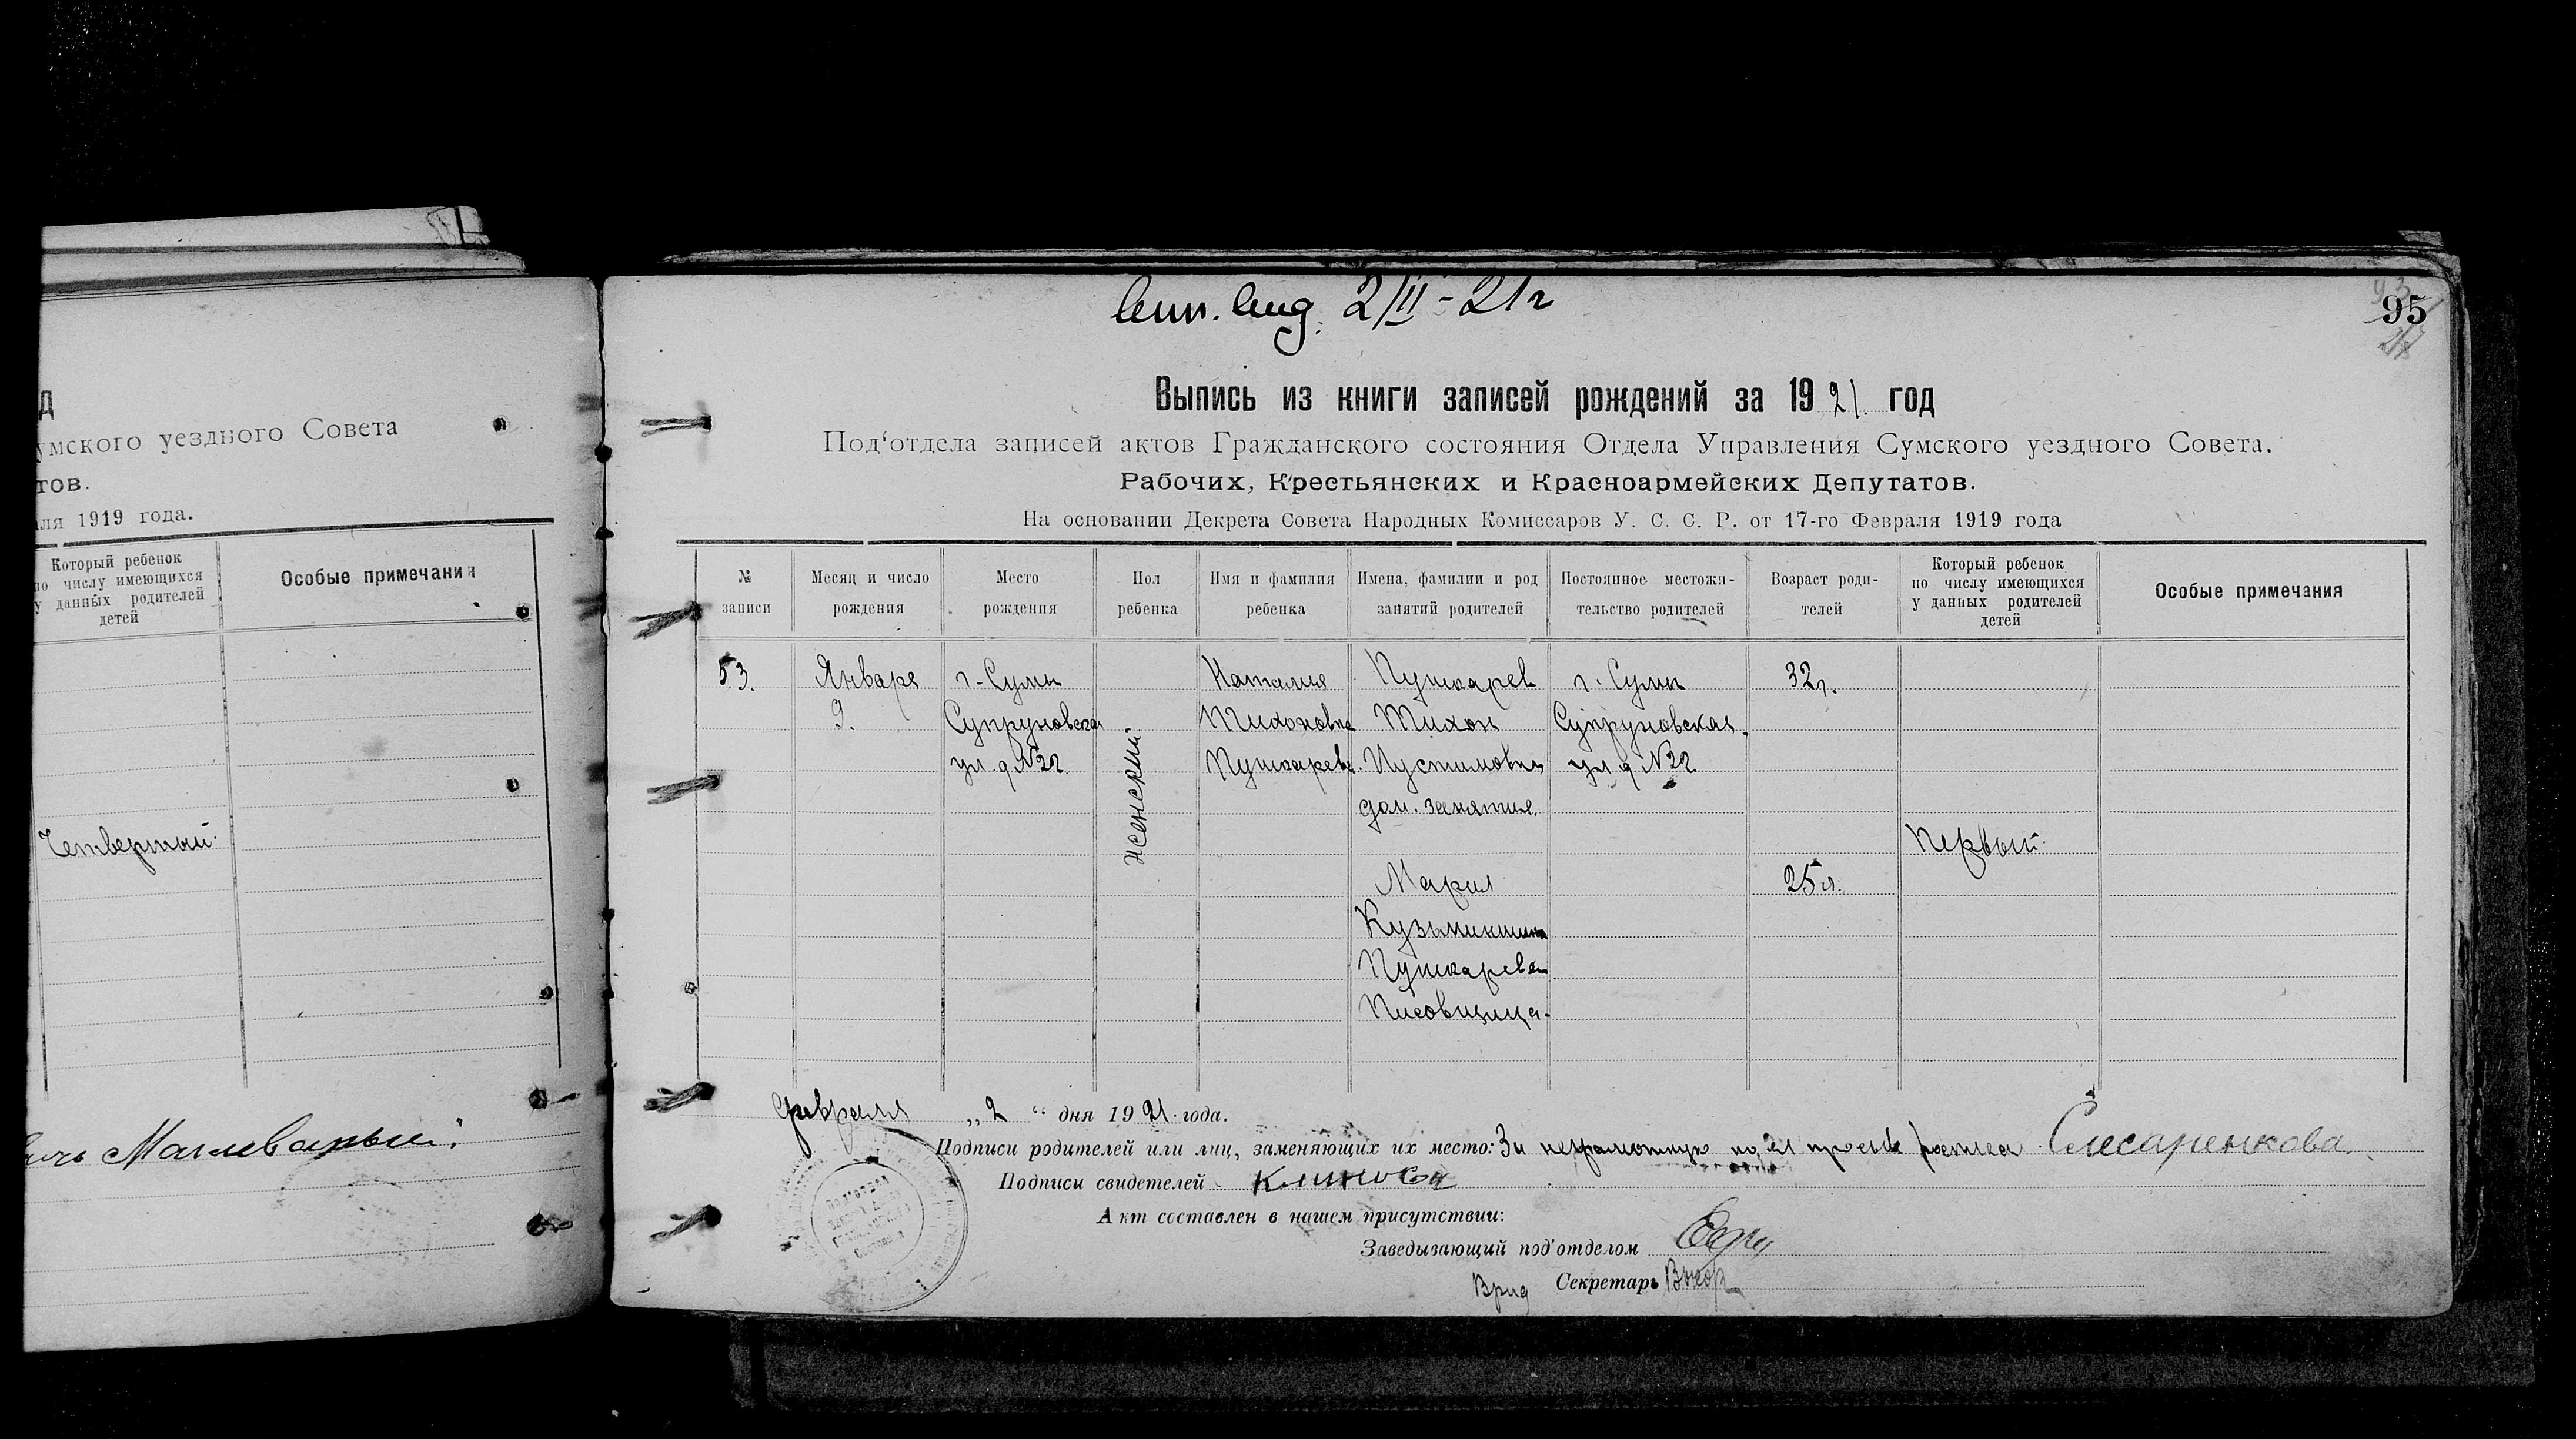 д
умского уездного Совета
тов.
ля 1919 года.
Который ребенок
по числу имеющихся
у данных родителей
детей
Особые примечания
Четвертый
2/II-21г
95
Выпись из книги записей рождений за 1921 год
Под'отдела записей актов Гражданского состояния Отдела Управления Сумского уездного Совета.
Рабочих, Крестьянских и Красноармейских Депутатов.
На основании Декрета Совета Народных Комиссаров У. С. С. Р. от 17-го Февраля 1919 года
№
записи
Месяц и число
рождения
Место
рождения
Пол
ребенка
Имя и фамилия
ребенка
Имена, фамилии и род
занятий родителей
Постоянное местожи-
тельство родителей
Возраст роди-
телей
Который ребенок
по числу имеющихся
у данных родителей
детей
Особые примечания
53.
Января
9.
г. Сумы
Супруновская
ул д №22
женский
Наталия
Тихоновна
Пушкарева.
Пушкарев
Тихон
Иустимович
дом. занятия.
Мария
Кузьминична
Пушкарева
Писовщица.
г. Сумы
Супруновская.
ул д №22
32г.
25л.
Первый
февраля „2“ дня 1921 года.
Подписи родителей или лиц, заменяющих их место: За неграмотную по ея просьбе Слесаренкова.
Подписи свидетелей
Акт составлен в нашем присутствии:
Заведывающий под'отделом
Врид Секретарь